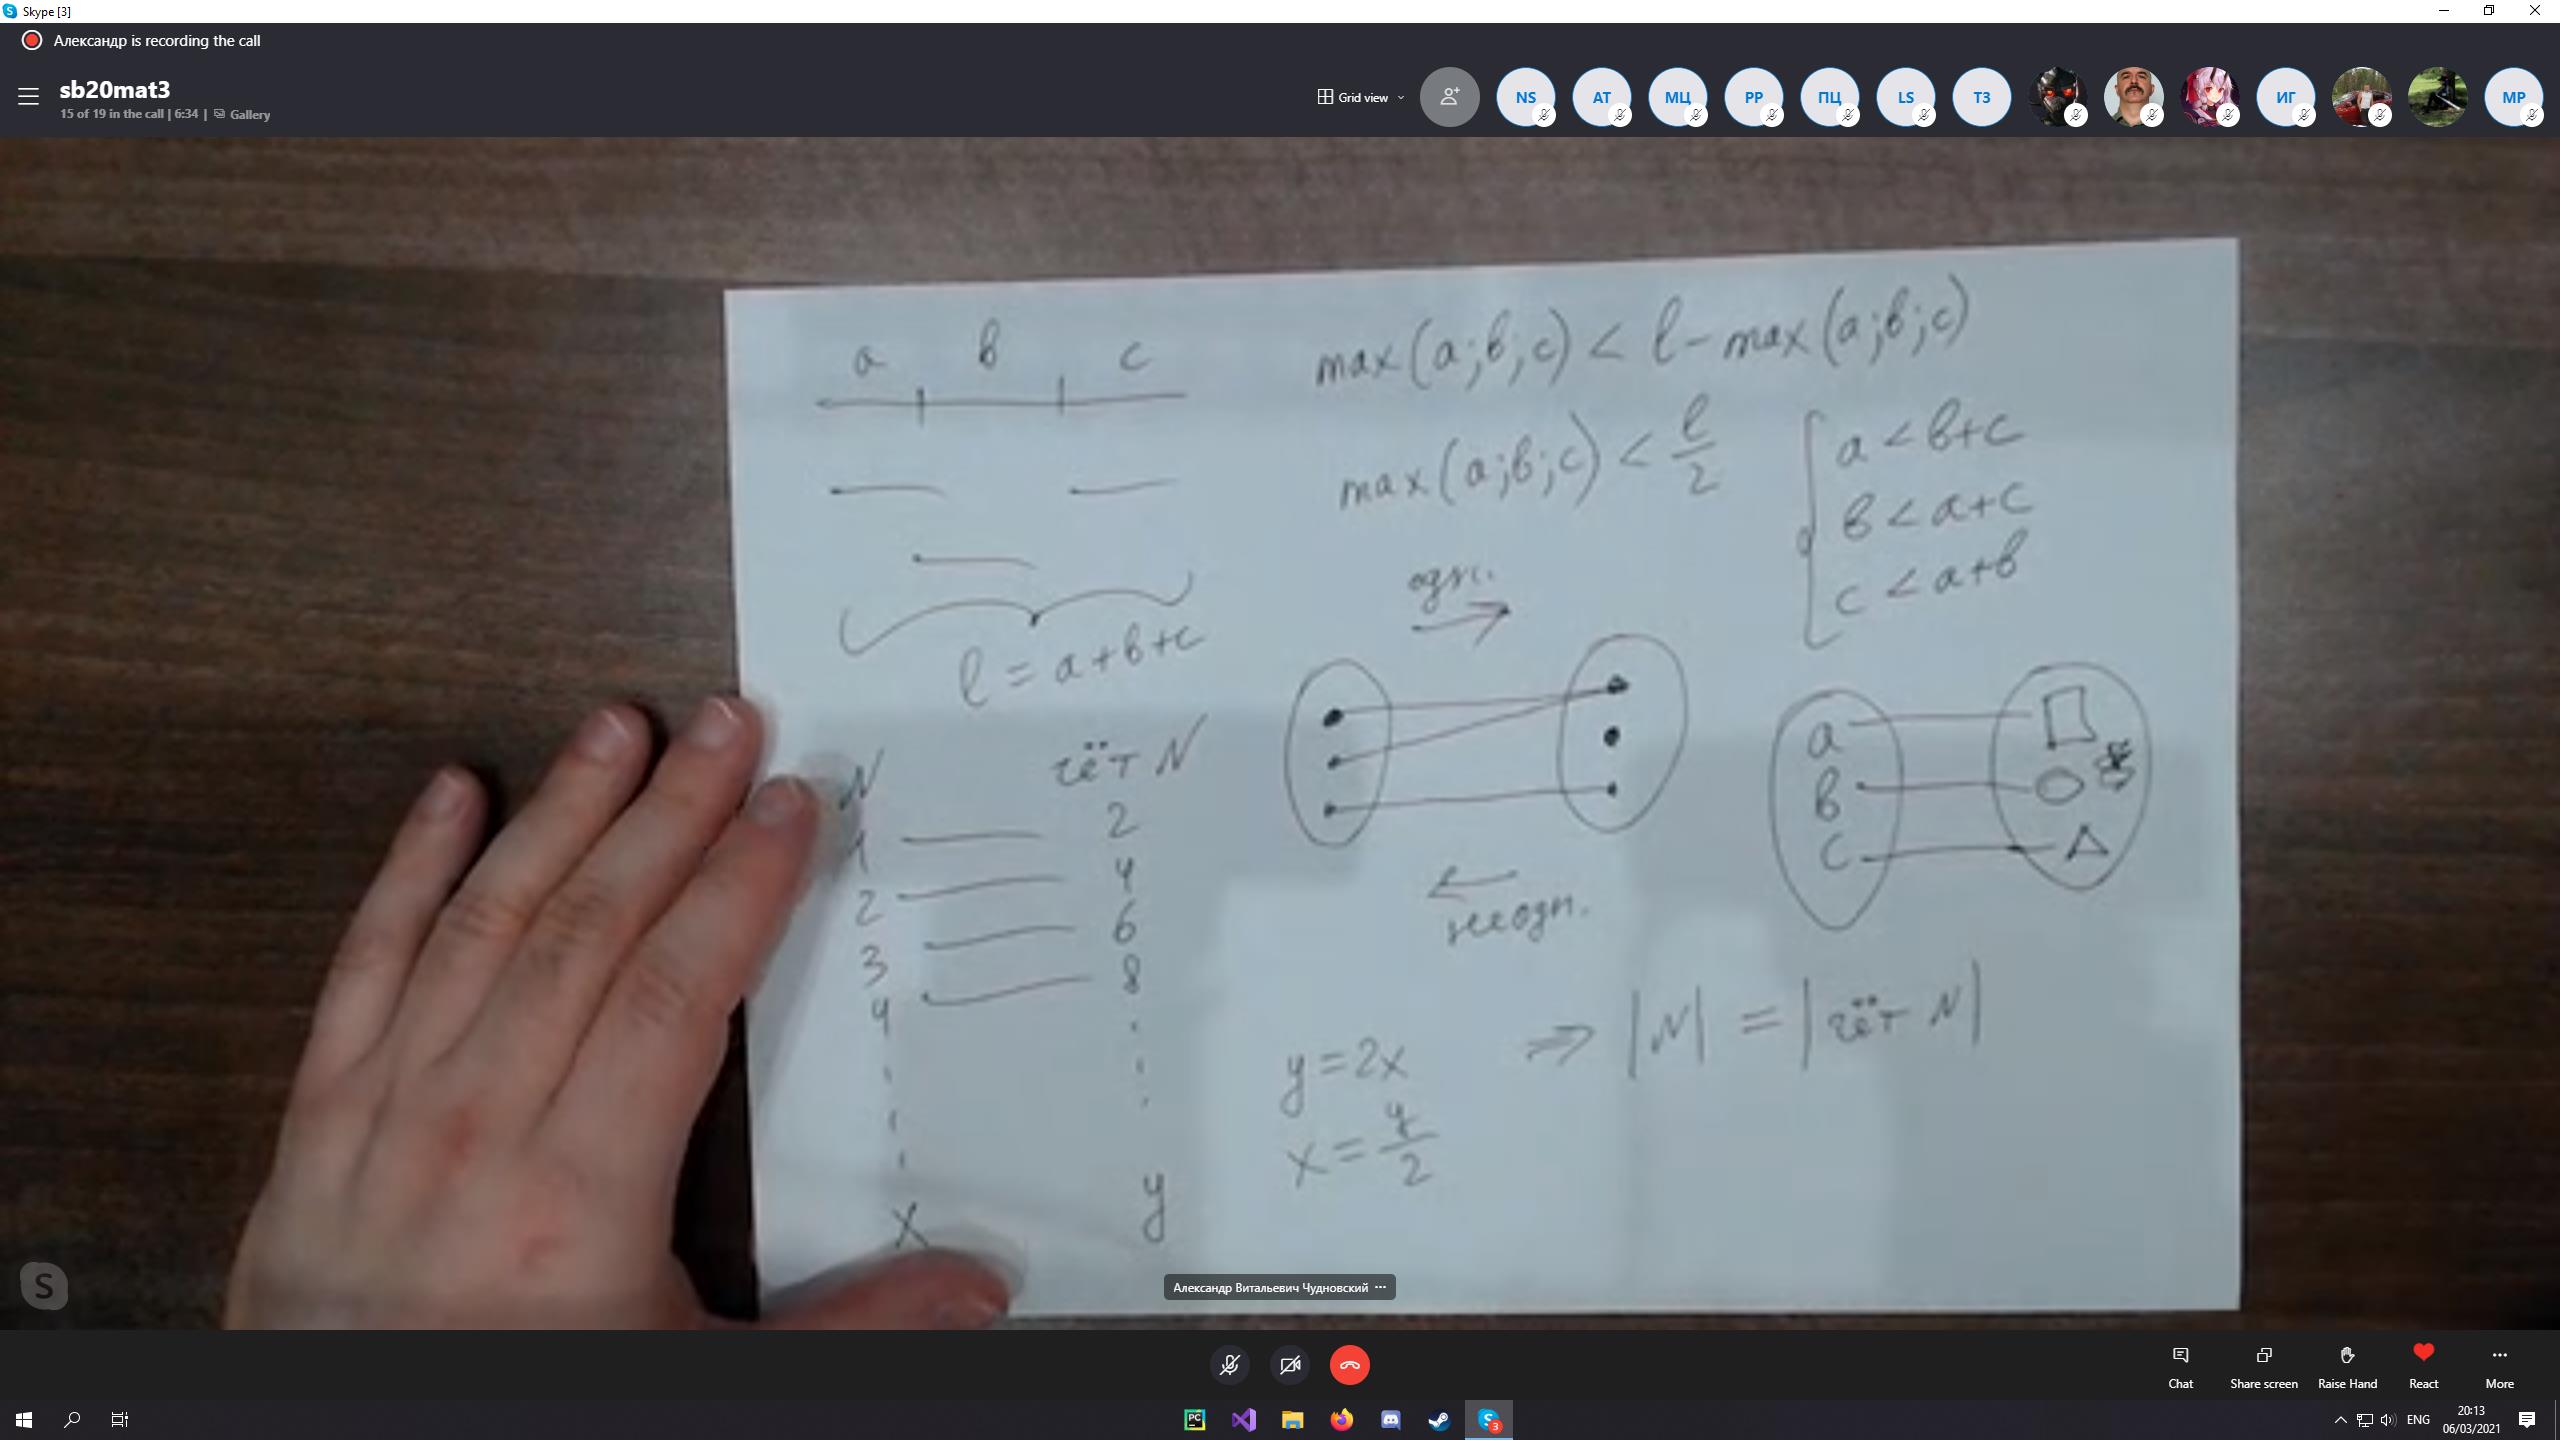 Skype [3]
Александр is recording the call
sb20mat3
15 of 19 in the call | 6:34 | Gallery
Grid view
NS
АТ
МЦ
PP
ПЦ
LS
ТЗ
ИГ
MP
a в c
max(a;в;c) < l - max(a;в;c)
max(a;в;c) < l/2
a < в+c
в < a+c
c < a+в
l = a+в+c
одн.
неодн.
a
в
c
N чёт N
1 2
2 4
3 6
4 8
x y
y=2x
x = y/2
⇒ |N| = |чёт N|
Александр Витальевич Чудновский
Chat
Share screen
Raise Hand
React
More
PC
3
ENG
20:13
06/03/2021